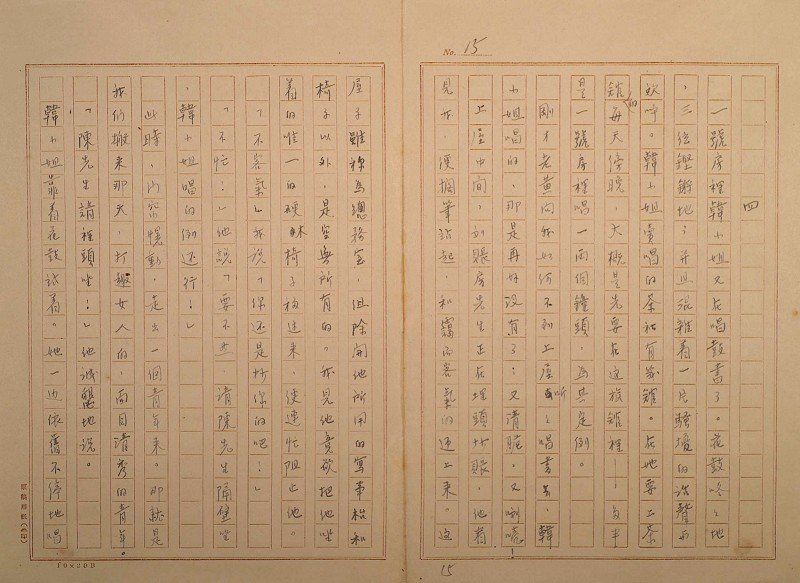 No. 15
四
一號房裡韓小姐又在唱鼓書了。花鼓咚咚地
，三弦鏗鏘地；并且混雜着一片騷擾的談聲和
歡呼。韓小姐賣唱的茶社有幾館。在她要上茶
館的每天傍晚，大概是先要在這旅館裡——多半
是一號房裡唱一兩個鐘頭，為其定例。
剛才老黃問我如何不到上屋聽聽唱書去，韓
小姐唱的，那是再好沒有了；又清脆，又嘹喨！
上屋中間，到賬房先生正在埋頭抄賬。他看
見我，便擱筆站起，和靄而客氣的迎上來。這
屋子雖称為總務室，但除開他所用的寫字枱和
椅子以外，是空無所有的。我見他竟欲把他坐
着的惟一的硬木椅子移過來，便連忙阻止他。
「不客氣」我說「你还是忙你的吧！」
「不忙！」他說「要不然，請陳先生隔壁坐
，韓小姐唱的倒还行！」
此時，門帘愰動，走出一個青年來。那就是
我們搬来那天，打趣女人的，面目清秀的青年。
「陳先生請裡頭坐！」他誠懇地說。
韓小姐靠着花鼓站着。她一边依舊不停地唱
10×20B
15